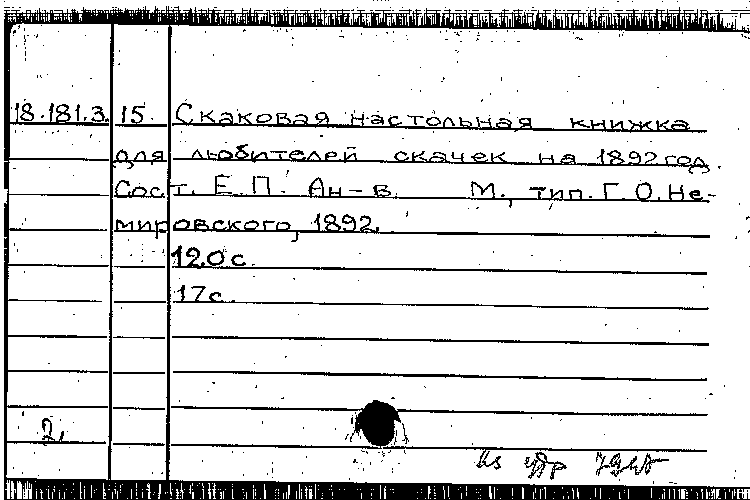 18.181.3.15. Скаковая настольная книжка
для любителей скачек на 1892 год.
Сост. Е.П. Ан-в. М., тип. Г.О.Не-
мировского, 1892.
120 с.
17с.
2.